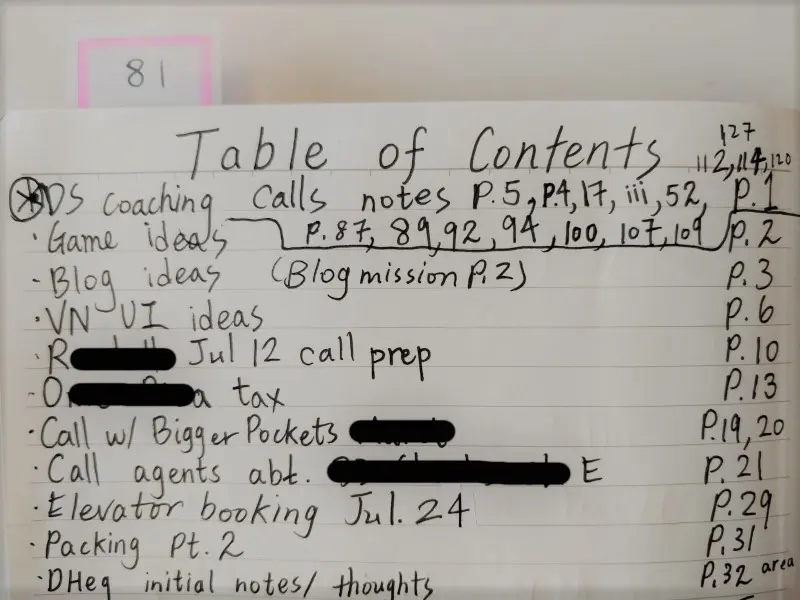 81
Table of Contents
127
112, 114, 120
DS coaching calls notes P.5, P.4, 17, iii, 52, P.1
· Game ideas P.87, 89, 92, 94, 100, 107, 109 P.2
- Blog ideas (Blog mission P.2) P.3
· VN UI ideas P.6
· R Jul 12 call prep P.10
· O a tax P.13
· Call w/ Bigger Pockets P.19, 20
· Call agents abt. E P.21
· Elevator booking Jul. 24 P.29
· Packing Pt. 2 P.31
· DHeq initial notes/ thoughts P.32 area